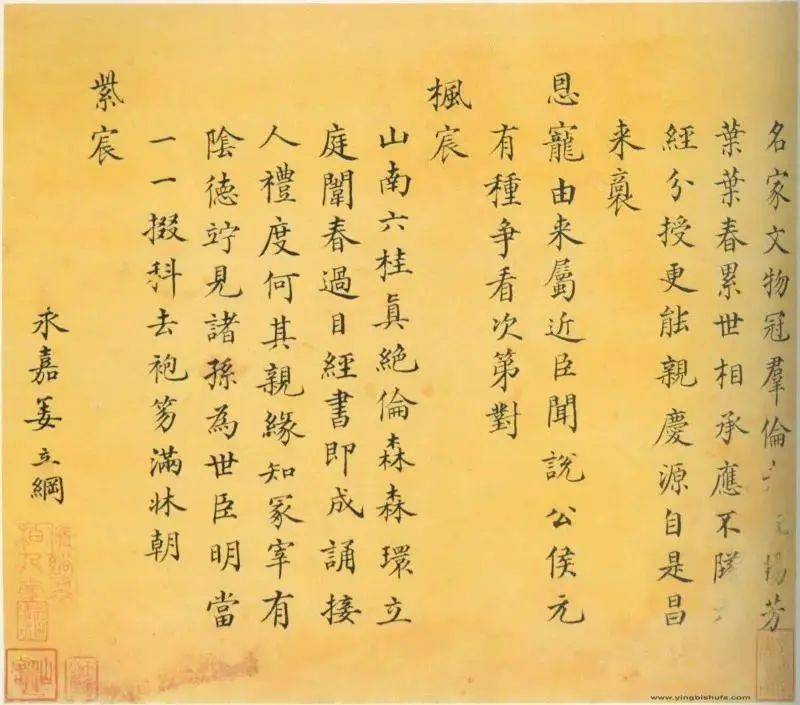 名家文物冠羣倫揚芳
葉葉春累世相承應不
經分授更能親慶源自是昌
来裔
恩寵由来屬近臣聞說公侯元
有種争看次第對
楓宸
山南六桂眞絶倫森森環立
庭闈春過目經書即成誦接
人禮度何其親緣知冢宰有
陰德竚見諸孫為世臣明當
一一掇科去袍笏滿牀朝
紫宸
永嘉姜立綱
www.yingbishufa.com